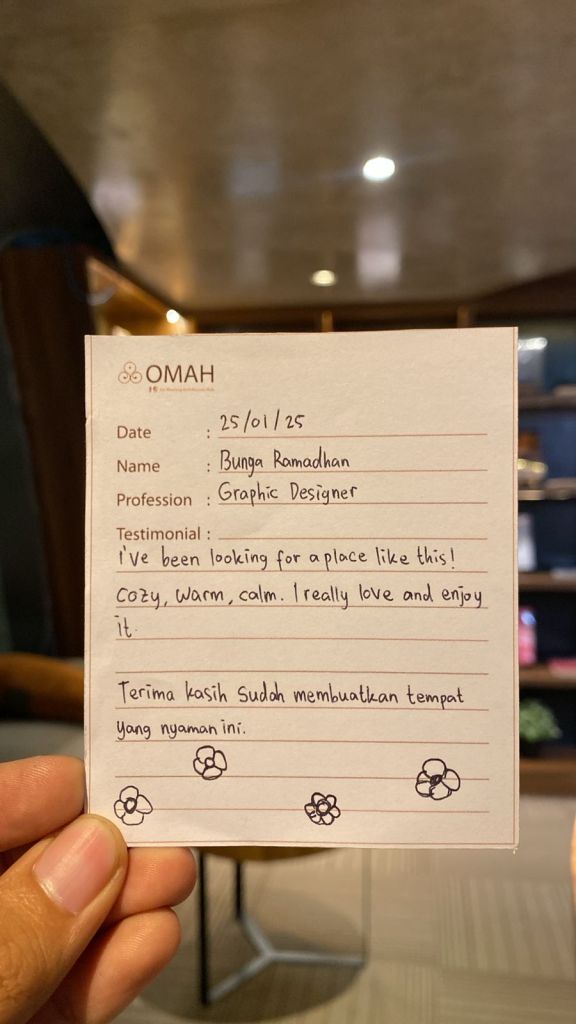 OMAH
Date : 25/01/25
Name : Bunga Ramadhan
Profession : Graphic Designer
Testimonial :
I've been looking for a place like this!
Cozy, warm, calm. I really love and enjoy
it.
Terima kasih sudah membuatkan tempat
yang nyaman ini.